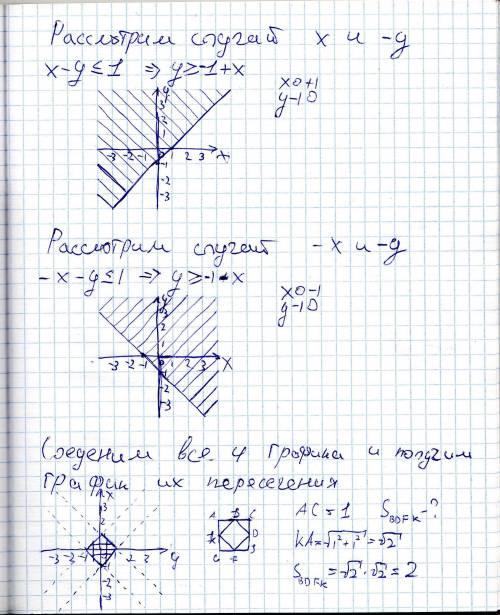 Рассмотрим случай x и -y
x-y≤1 ⇒ y≥-1+x
x 0 +1
y -1 0
y
3
2
1
-3 -2 -1 0 1 2 3 x
-1
-2
-3
Рассмотрим случай -x и -y
-x-y≤1 ⇒ y≥-1-x
x 0 -1
y -1 0
y
3
2
1
-3 -2 -1 0 1 2 3 x
-1
-2
-3
Соеденим все 4 графика и получим
график их пересечения
x
-3 -2 -1 1 2 y
-2
-3
A B C
K D
G F
AC=1 S BDFK -?
KA=√1²+1²=√2
S BDFK =√2·√2=2